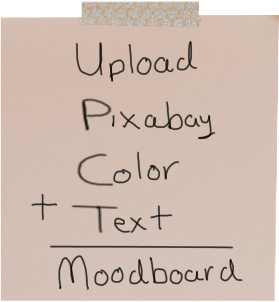 Upload
Pixabay
Color
+ Text
Moodboard